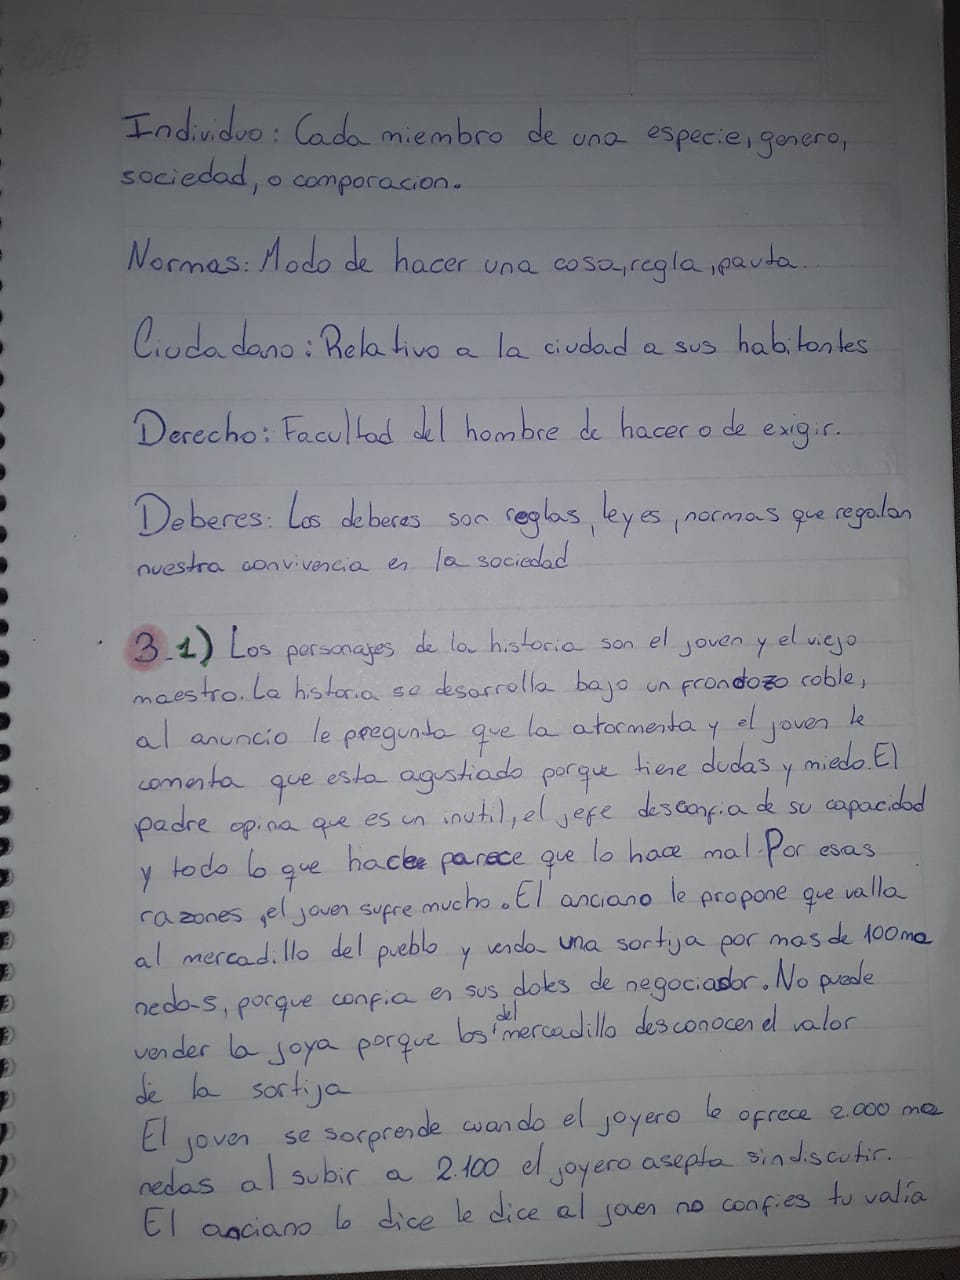 Individuo: Cada miembro de una especie, genero,
sociedad, o comporacion.
Normas: Modo de hacer una cosa, regla, pauta
Ciudadano: Relativo a la ciudad a sus habitantes
Derecho: Facultad del hombre de hacer o de exigir.
Deberes: Los deberes son reglas, leyes, normas que regalan
nuestra convivencia en la sociedad
3_1) Los personajes de la historia son el joven y el viejo
maestro. La historia se desarrolla bajo un frondozo roble,
al anuncio le pregunta que la atormenta y el joven le
comenta que esta agustiado porque tiene dudas y miedo. El
padre opina que es un inutil, el jefe desconfia de su capacidad
y todo lo que hace parece que lo hace mal. Por esas
razones, el joven sufre mucho. El anciano le propone que valla
al mercadillo del pueblo y venda una sortija por mas de 100 mo
nedas, porque confia en sus dotes de negociador. No puede
vender la joya porque los del mercadillo desconocen el valor
de la sortija
El joven se sorprende cuando el joyero le ofrece 2.000 mo
nedas al subir a 2.100 el joyero asepta sin discutir.
El anciano lo dice le dice al joven no confies tu valía